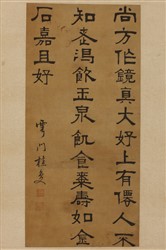 尚方作鏡真大好上有僊人不
知老渴飲玉泉飢食棗壽如金
石嘉且好
雩門桂